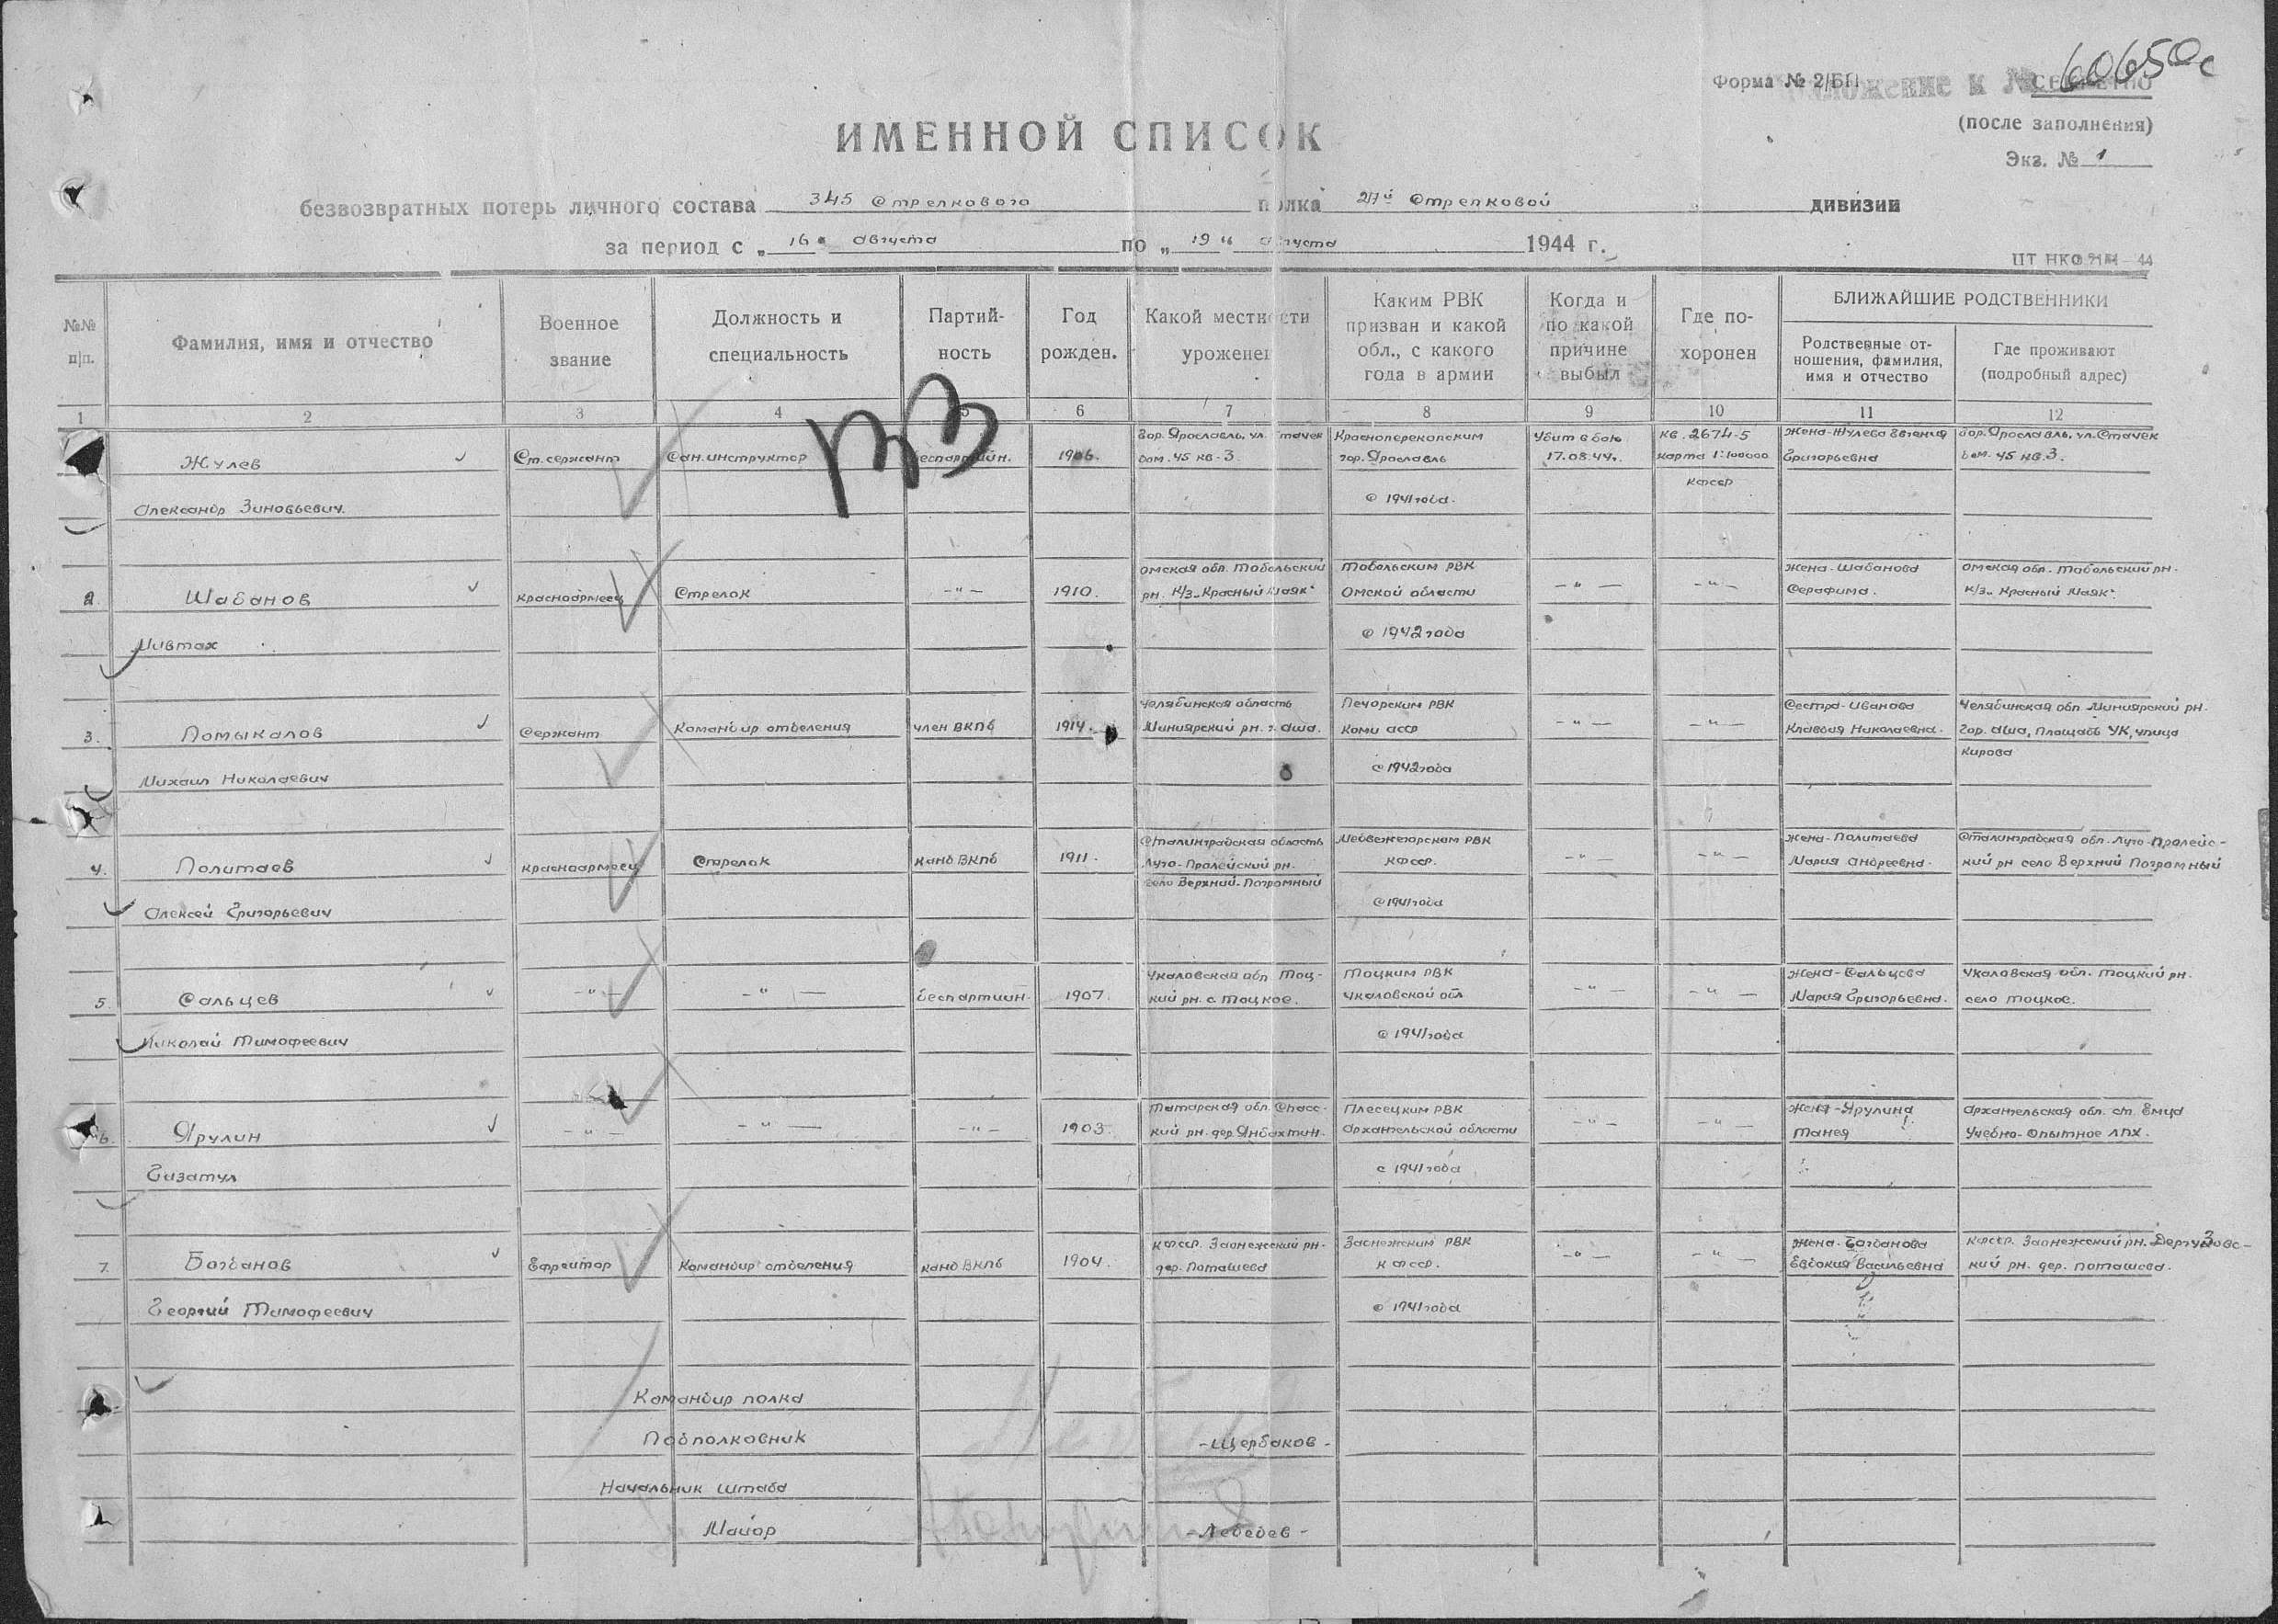 Форма № 2/БП
Приложение к № 60650с
СЕКРЕТНО
(после заполнения)
Экз. № 1
ИМЕННОЙ СПИСОК
безвозвратных потерь личного состава 345 Стрелкового полка 27й Стрелковой дивизии
за период с „16" августа по „19" августа 1944 г.
№№ п/п.
Фамилия, имя и отчество
Военное звание
Должность и специальность
Партий-
ность
Год рожден.
Какой местности уроженец
Каким РВК
призван и какой
обл., с какого
года в армии
Когда и
по какой
причине
выбыл
Где по-
хоронен
БЛИЖАЙШИЕ РОДСТВЕННИКИ
Родственные от-
ношения, фамилия,
имя и отчество
Где проживают
(подробный адрес)
1 2 3 4 5 6 7 8 9 10 11 12
Жулев
Александр Зиновьевич.
Ст. сержант
Сан. инструктор
Беспартийн.
1906.
Гор. Ярославль, ул. Стачек
дом. 45 кв. 3.
Красноперекопским
гор. Ярославль
с 1941 года.
Убит в бою
17.08.44г.
кв. 2674-5
карта 1:100000
КФССР
Жена-Жулева Евгения
Григорьевна
Гор. Ярославль, ул. Стачек
дом. 45 кв. 3.
2.
Шабанов
Мивтах
Красноармеец
Стрелок
-"-
1910.
Омская обл. Тобольский
рн. к/з „Красный Маяк"
Тобольским РВК
Омской области
с 1942 года
-"-
-"-
Жена-Шабанова
Серафима.
Омская обл. Тобольский рн.
к/з „Красный Маяк".
3.
Помыкалов
Михаил Николаевич
Сержант
Командир отделения
член ВКПб
1914.
Челябинская область
Миниярский рн. г. Аша.
Печорским РВК
Коми АССР
с 1942 года
-"-
-"-
Сестра-Иванова
Клавдия Николаевна.
Челябинская обл. Миниярский рн.
Гор. Аша, Площадь УК, улица
Кирова
4.
Политаев
Алексей Григорьевич
Красноармеец
Стрелок
канд ВКПб
1911.
Сталинградская область
Луго-Пролейский рн.
село Верхний-Погромный
Медвежегорским РВК
КФССР.
с 1941 года
-"-
-"-
Жена-Политаева
Мария Андреевна.
Сталинградская обл. Луго-Пролейс-
кий рн село Верхний Погромный
5.
Сальцев
Николай Тимофеевич
-"-
-"-
Беспартийн.
1907.
Чкаловская обл Тоц-
кий рн. с. Тоцкое.
Тоцким РВК
Чкаловской обл
с 1941 года
-"-
-"-
Жена-Сальцева
Мария Григорьевна.
Чкаловская обл. Тоцкий рн.
село Тоцкое.
6.
Ярулин
Гизатул
-"-
-"-
-"-
1903.
Татарская обл. Спасс-
кий рн. дер. Янбахтин.
Плесецким РВК
Архангельской области
с 1941 года
-"-
-"-
Жена-Ярулина
Танея
Архангельская обл. ст. Емца
Учебно-Опытное ЛПХ.
7.
Богданов
Георгий Тимофеевич
Ефрейтор
Командир отделения
канд ВКПб
1904.
КФССР. Заонежский рн-
дер. Поташева
Заонежским РВК
КФССР.
с 1941 года
-"-
-"-
Жена-Богданова
Евдокия Васильевна
КФССР. Заонежский рн.
кий рн. дер. Поташева.
Командир полка
Подполковник -Щербаков-
Начальник штаба
Майор -Лебедев-